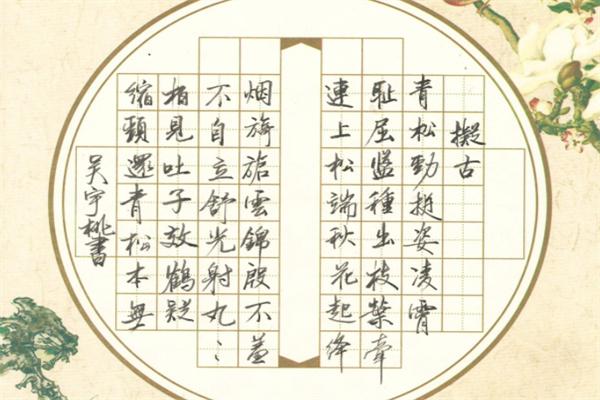 擬古
青松勁挺姿凌霄
耻屈盤種出枝葉牽
連上松端秋花起絳
烟旖旎雲錦殷不羞
不自立舒光射丸〻
栢見吐子效鶴疑
縮頸還青松本無
吴宇桃書